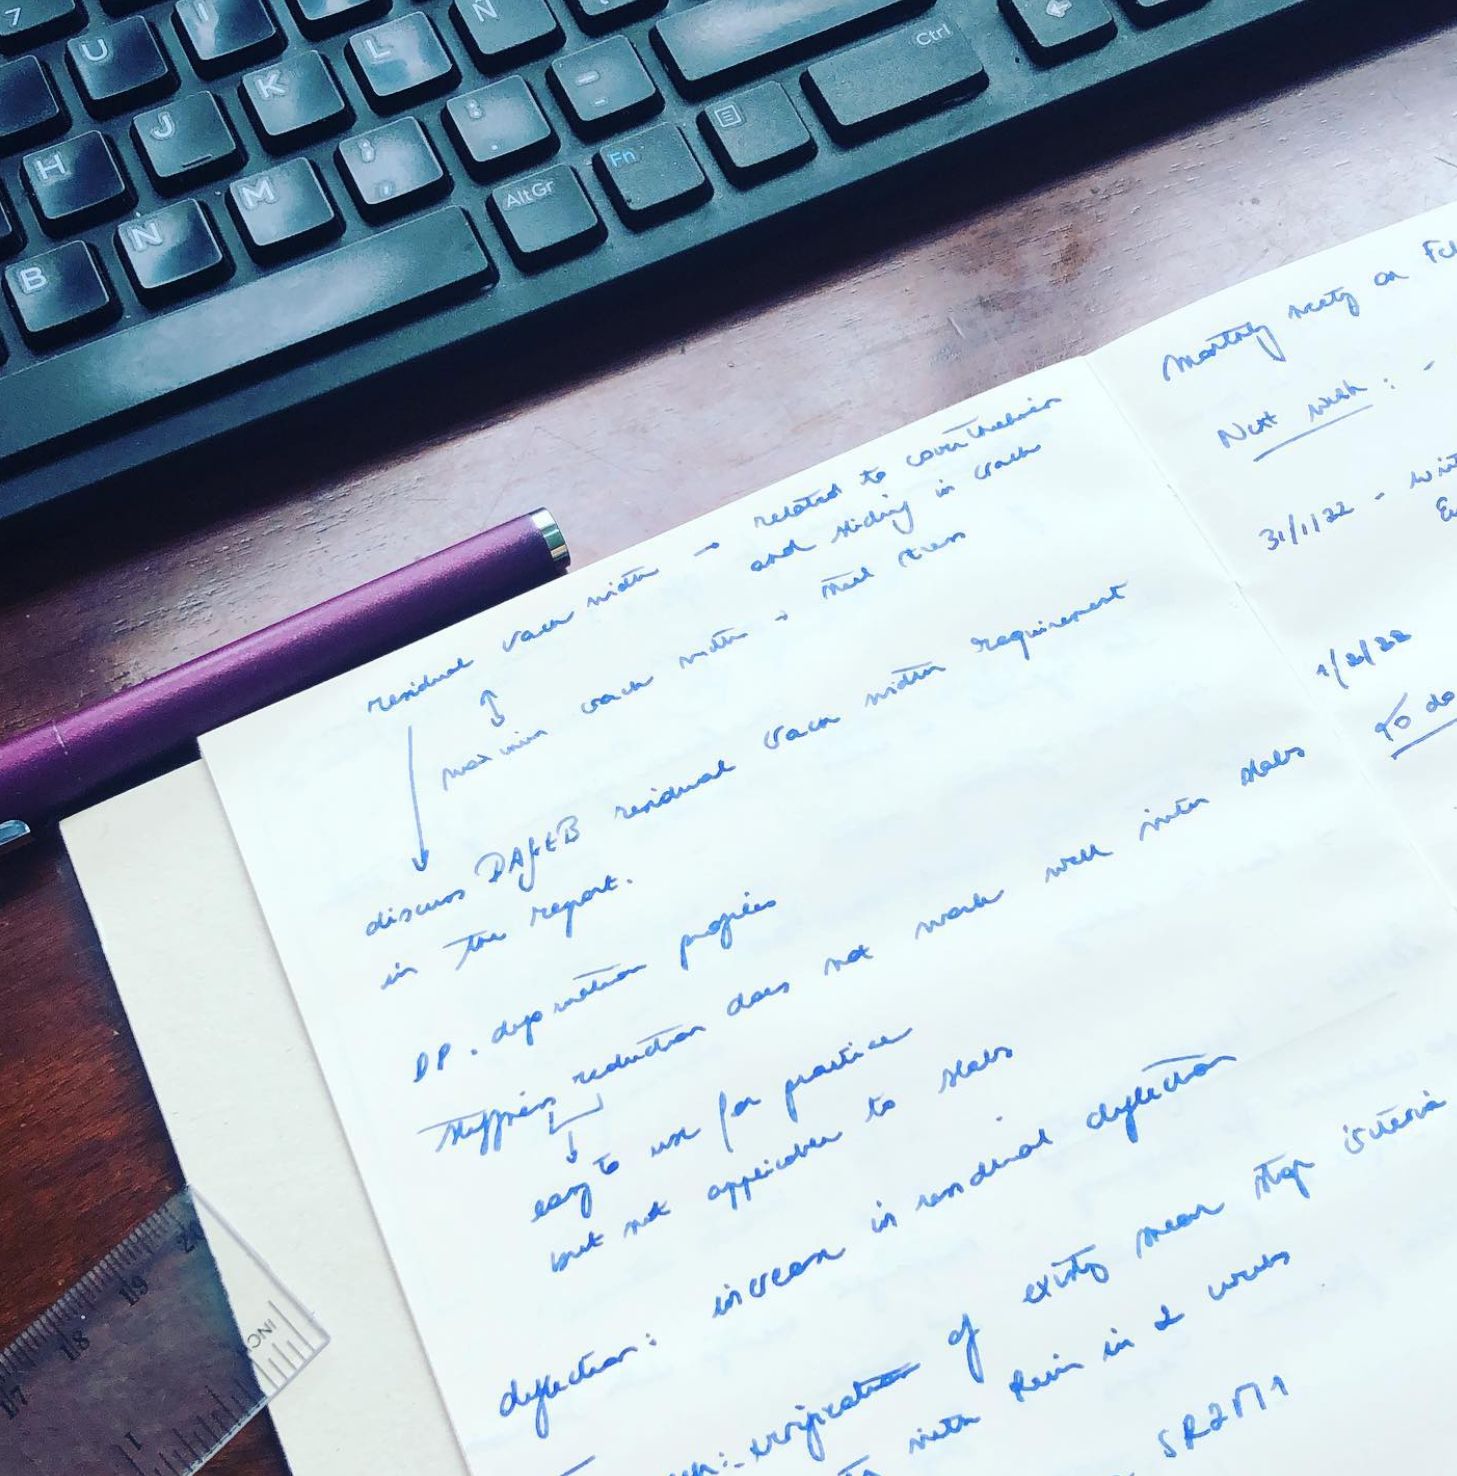 7
U
I
H
J
K
L
Ñ
B
N
M
;
,
:
.
-
_
AltGr
Fn
Ctrl
residual crack width → related to cover thickness
and sliding in crack
↕
maximum crack width → steel stress
discuss DAfStB residual crack width requirement
in the report.
DP. deformation profiles
stiffness reduction does not work well into slabs
easy to use for practice
but not applicable to slabs
deflection: increase in residual deflection
verification of existing shear stop criteria
with Rein in 2 weeks
SR2M1
Monthly meeting on
Next week: -
31/1/22 -
1/2/22
To do
17
18
19
20
INC
1